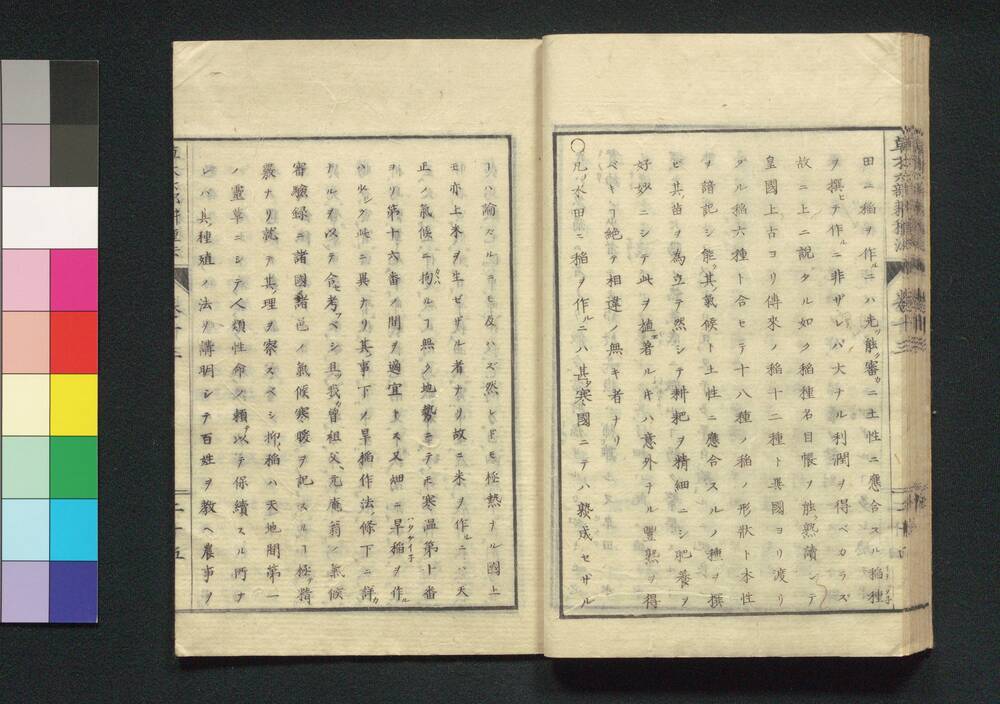 田ニ稲ヲ作ルニハ先ツ能ク審カニ土性ニ應合スル稲種
ヲ撰ヒテ作ルニ非ザレバ大ナル利潤ヲ得ベカラズ
故ニ上ニ説タル如ク稲種名目帳ヲ能ク熟讀シテ
皇國上古ヨリ傳來ノ稲十二種ト異國ヨリ渡リ
タル稲六種ト合セテ十八種ノ稲ノ形狀ト本性
ヲ諳記シ能ク其氣候ト土性ニ應合スルノ種ヲ撰
ビ其苗ヲ為立テ然シテ耕耙ヲ精細ニシ肥養ヲ
好妙ニシテ此ヲ植ヱ著ルキハ意外ナル豐熟ヲ得
ベキヿ絶テ相違ノ無キ者ナリ
○凡ソ水田ニ稲ヲ作ルニハ甚タ寒國ニテハ熟成セザル
ヿハ論スルニモ及ハズ然レドモ極熱ナル國土
モ亦上米ヲ生ゼザル者ナリ故ニ米ヲ作ルニハ天
正ノ氣候ニ拘ハルヿ無ク地勢ニテ正寒温第十番
ヨリ第十六番ノ間ヲ適宜トス又畑ニ旱稲ヲ作ル
ハ少シク此ニ異ナリ其事下ノ旱稲作法條下ニ詳カ
ナルヲ以テ合セ考フベシ且ツ我カ曾祖父元庵翁ノ氣候
審驗録ニ諸國諸邑ノ氣候寒暖ヲ記スルヿ極テ精
嚴ナリ就テ其理ヲ察スベシ抑稲ハ天地間第一
ノ靈草ニシテ人類性命ノ頼テ以テ保續スル所ナ
レバ其種殖ノ法ヲ講明シテ百姓ヲ教ヘ農事ヲ
草木六部耕種法
巻十三
二十五